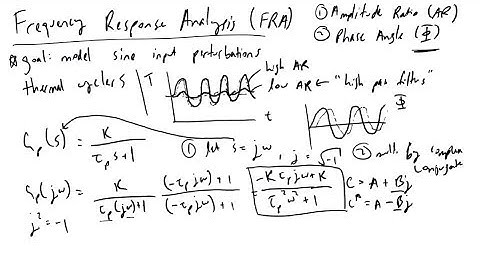 Frequency Response Analysis (FRA)
① Amplitude Ratio (AR)
② Phase Angle (Φ)
goal: model sine input perturbations
thermal cyclers
T
high AR
low AR ← "high pass filters"
t
Φ
Gp(s) = K / (τp s + 1)
① let s = jω, j = √-1
② mult. by complex conjugate
Gp(jω) = K / (τp(jω) + 1) · ((-τp jω) + 1) / ((-τp jω) + 1) = (-K τp jω + K) / (τp²ω² + 1)
C = A + Bj
C* = A - Bj
j² = -1